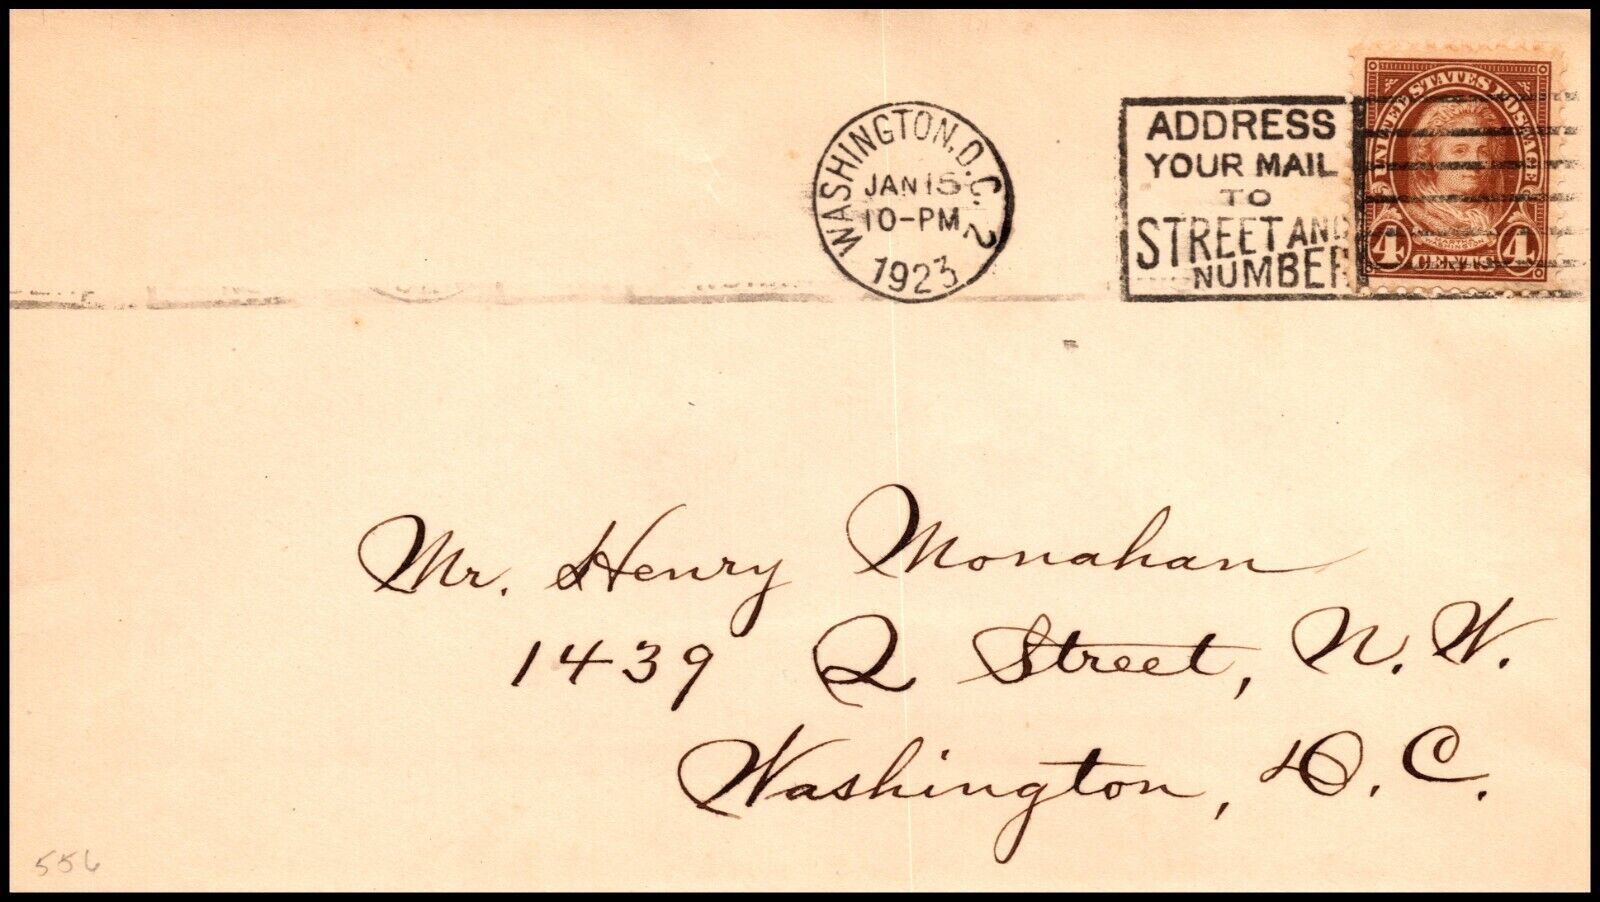 WASHINGTON, D.C. 2
JAN 15
10-PM
1923
ADDRESS
YOUR MAIL
TO
STREET AND
NUMBER
UNITED STATES POSTAGE
MARTHA
WASHINGTON
4 CENTS 4
Mr. Henry Monahan
1439 Q Street, N. W.
Washington, D. C.
556